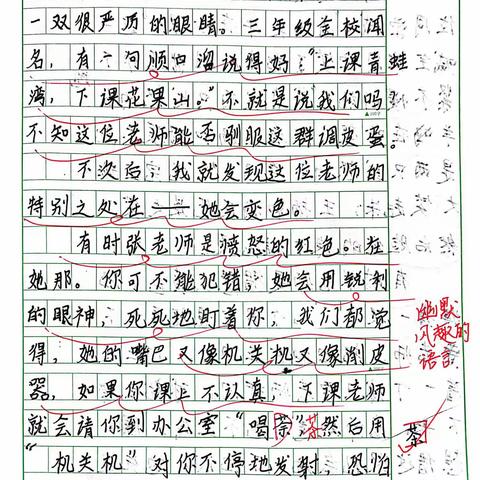 一双很严厉的眼睛。三年级全校闻
名，有一句顺口溜说得好："上课青蛙
满，下课花果山。"不就是说我们吗
不知这位老师能否驯服这群调皮蛋。
不次后，我就发现这位老师的
特别之处在——她会变色。
有时张老师是愤怒的红色。在
她那。你可不能犯错，她会用锐利
的眼神，死死地盯着你，我们都觉
得，她的嘴巴又像机关机又像削皮
器，如果你课上不认真，下课老师
就会请你到办公室"喝茶"茶然后用
"机关机"对你不停地发射，恐怕
幽默
风趣的
语言
茶